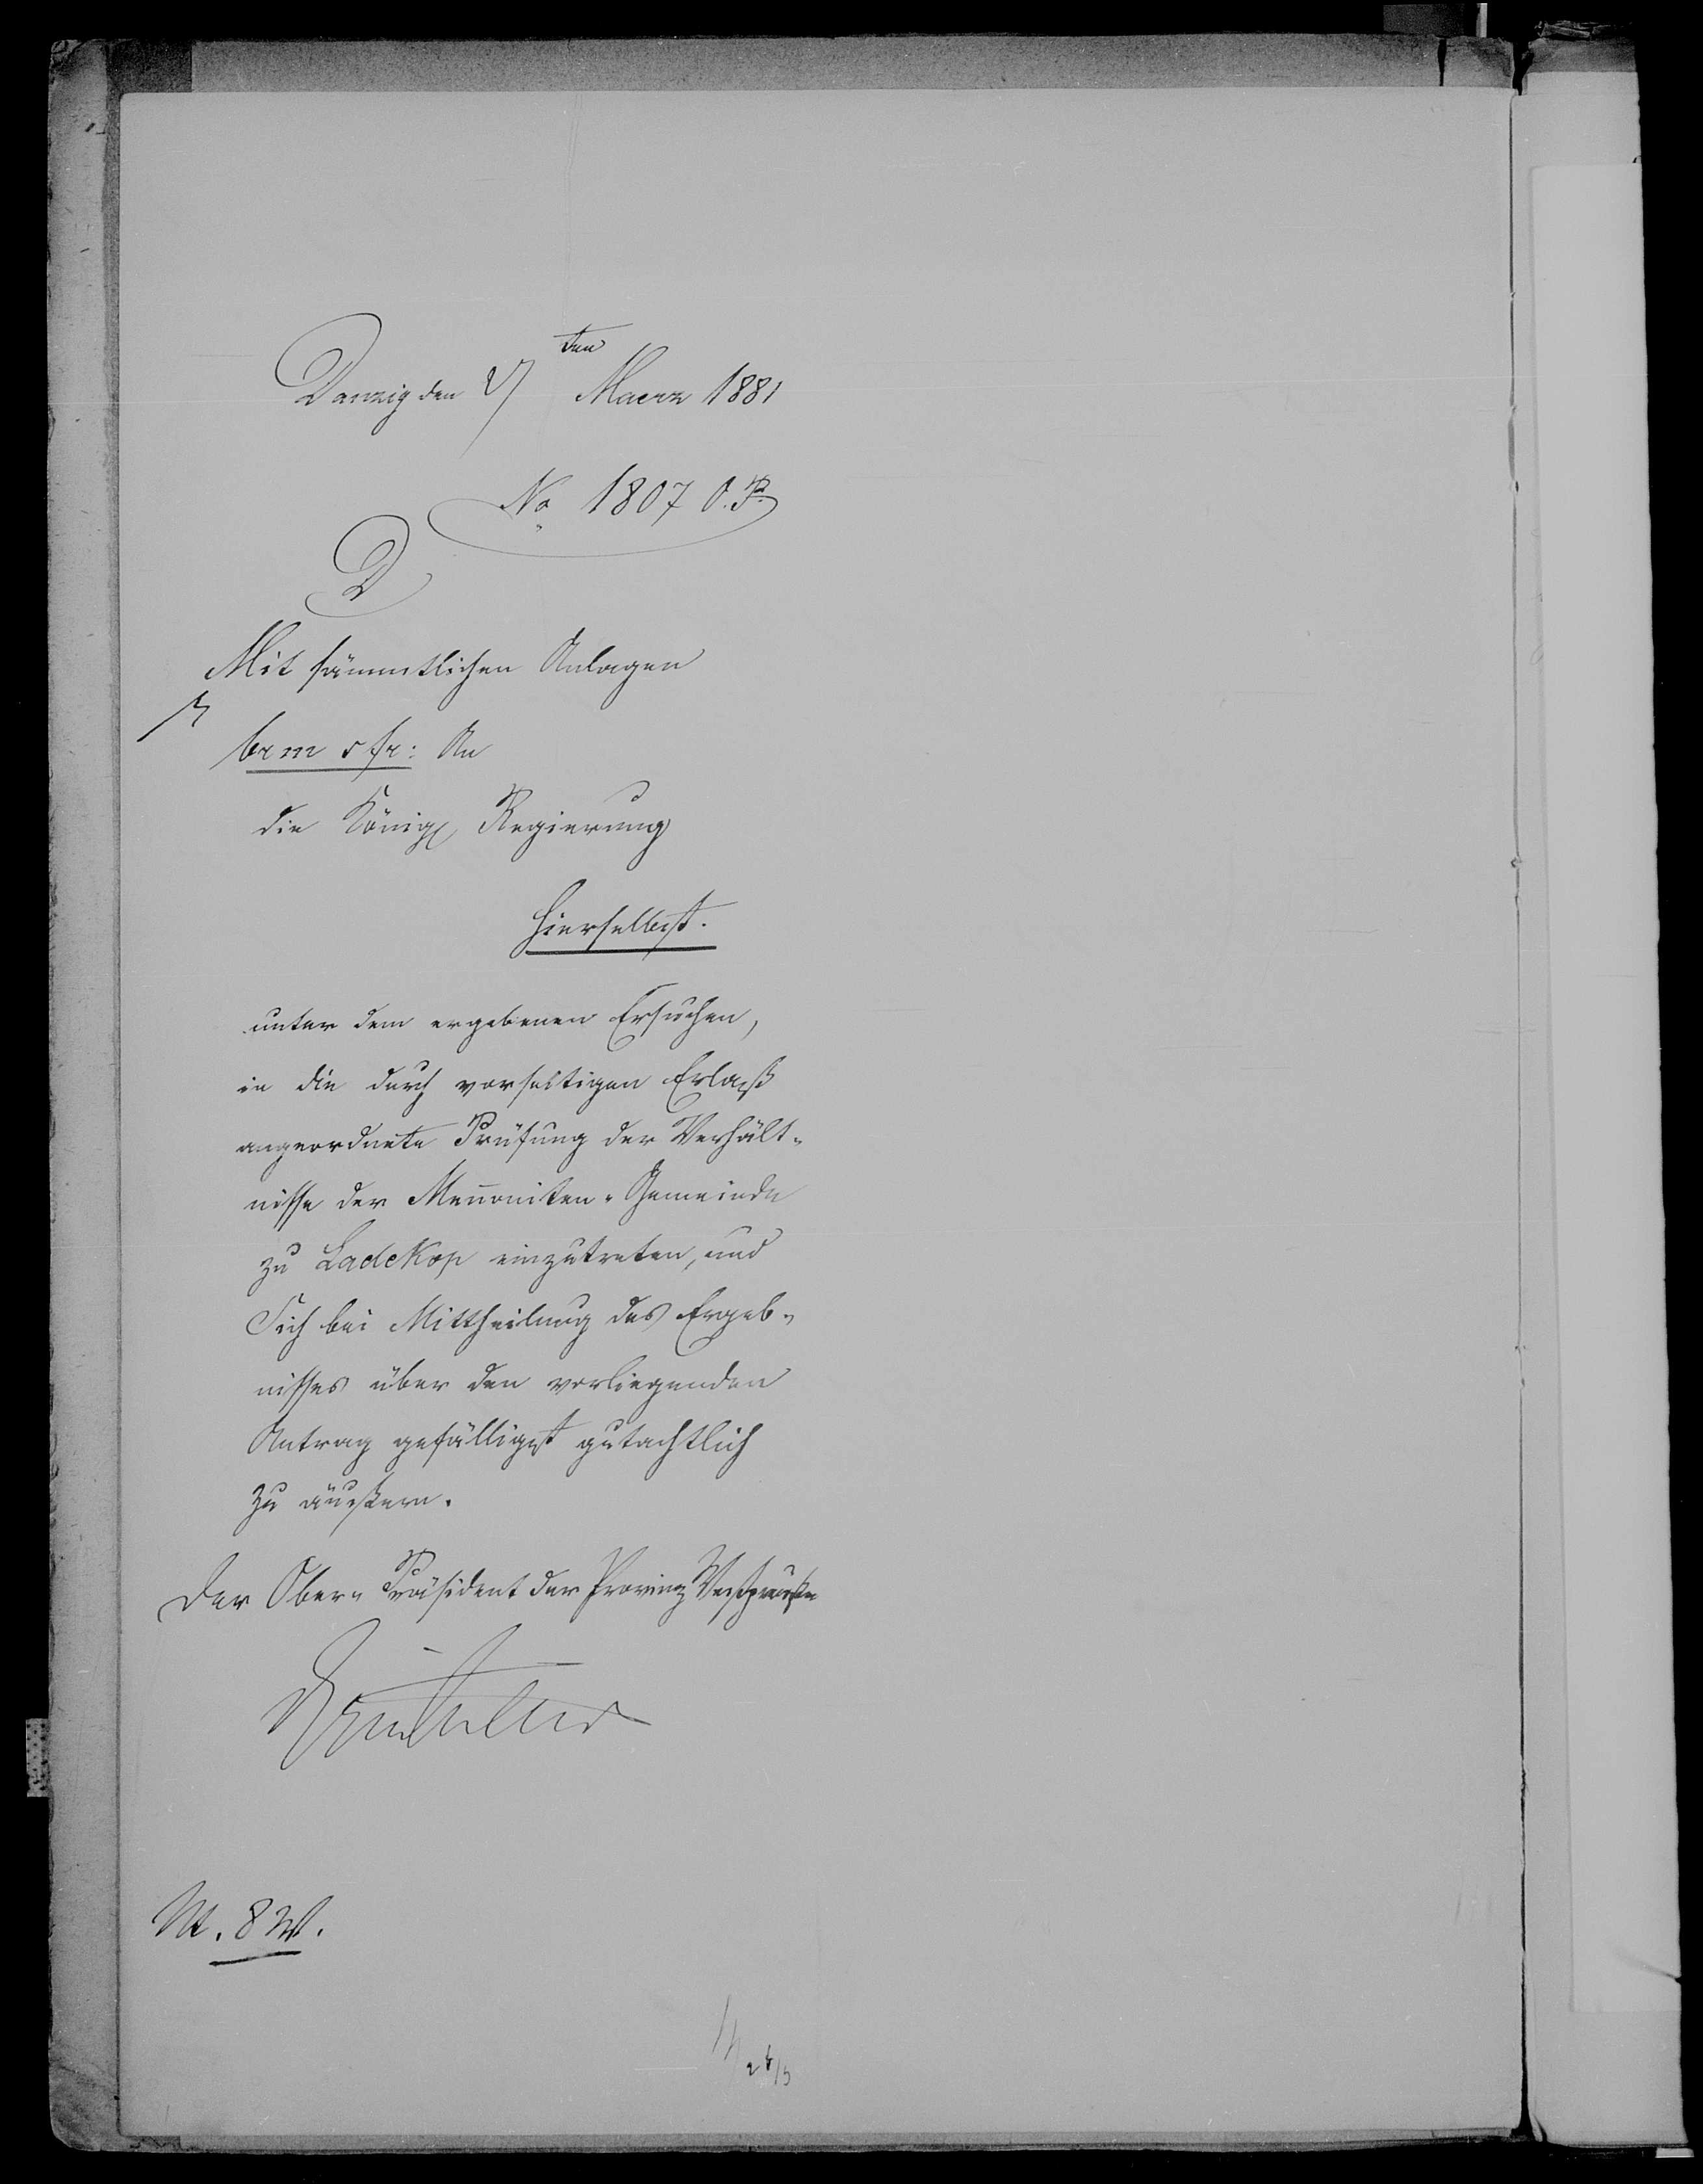 Danzig den ten Maerz 1881
No 1807 O.P.
D
Mit sämmtlichen Anlagen
brm sfr: An
die Königl Regierung
hierselbst.
unter dem ergebenen Ersuchen,
in die durch vorseitigen Erlaß
angeordnete Prüfung der Verhält-
nisse der Mennoniten-Gemeinde
zu Ladekop einzutreten, und
Sich bei Mittheilung des Ergeb-
nisses über den vorliegenden
Antrag gefälligst gutachtlich
zu äußern.
Der Ober-Präsident der Provinz Westpreußen
M. 8 W.